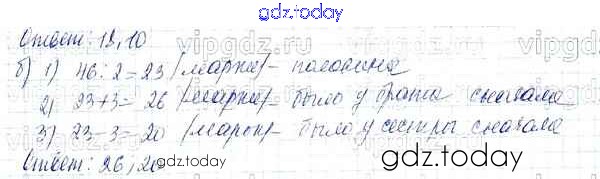 gdz.today
Ответ: 13,10
б) 1) 46:2=23 (марки) - половина
2) 23+3=26 (марки) - было у брата сначала
3) 23-3=20 (марок) - было у сестры сначала
Ответ: 26,20
gdz.today
gdz.today